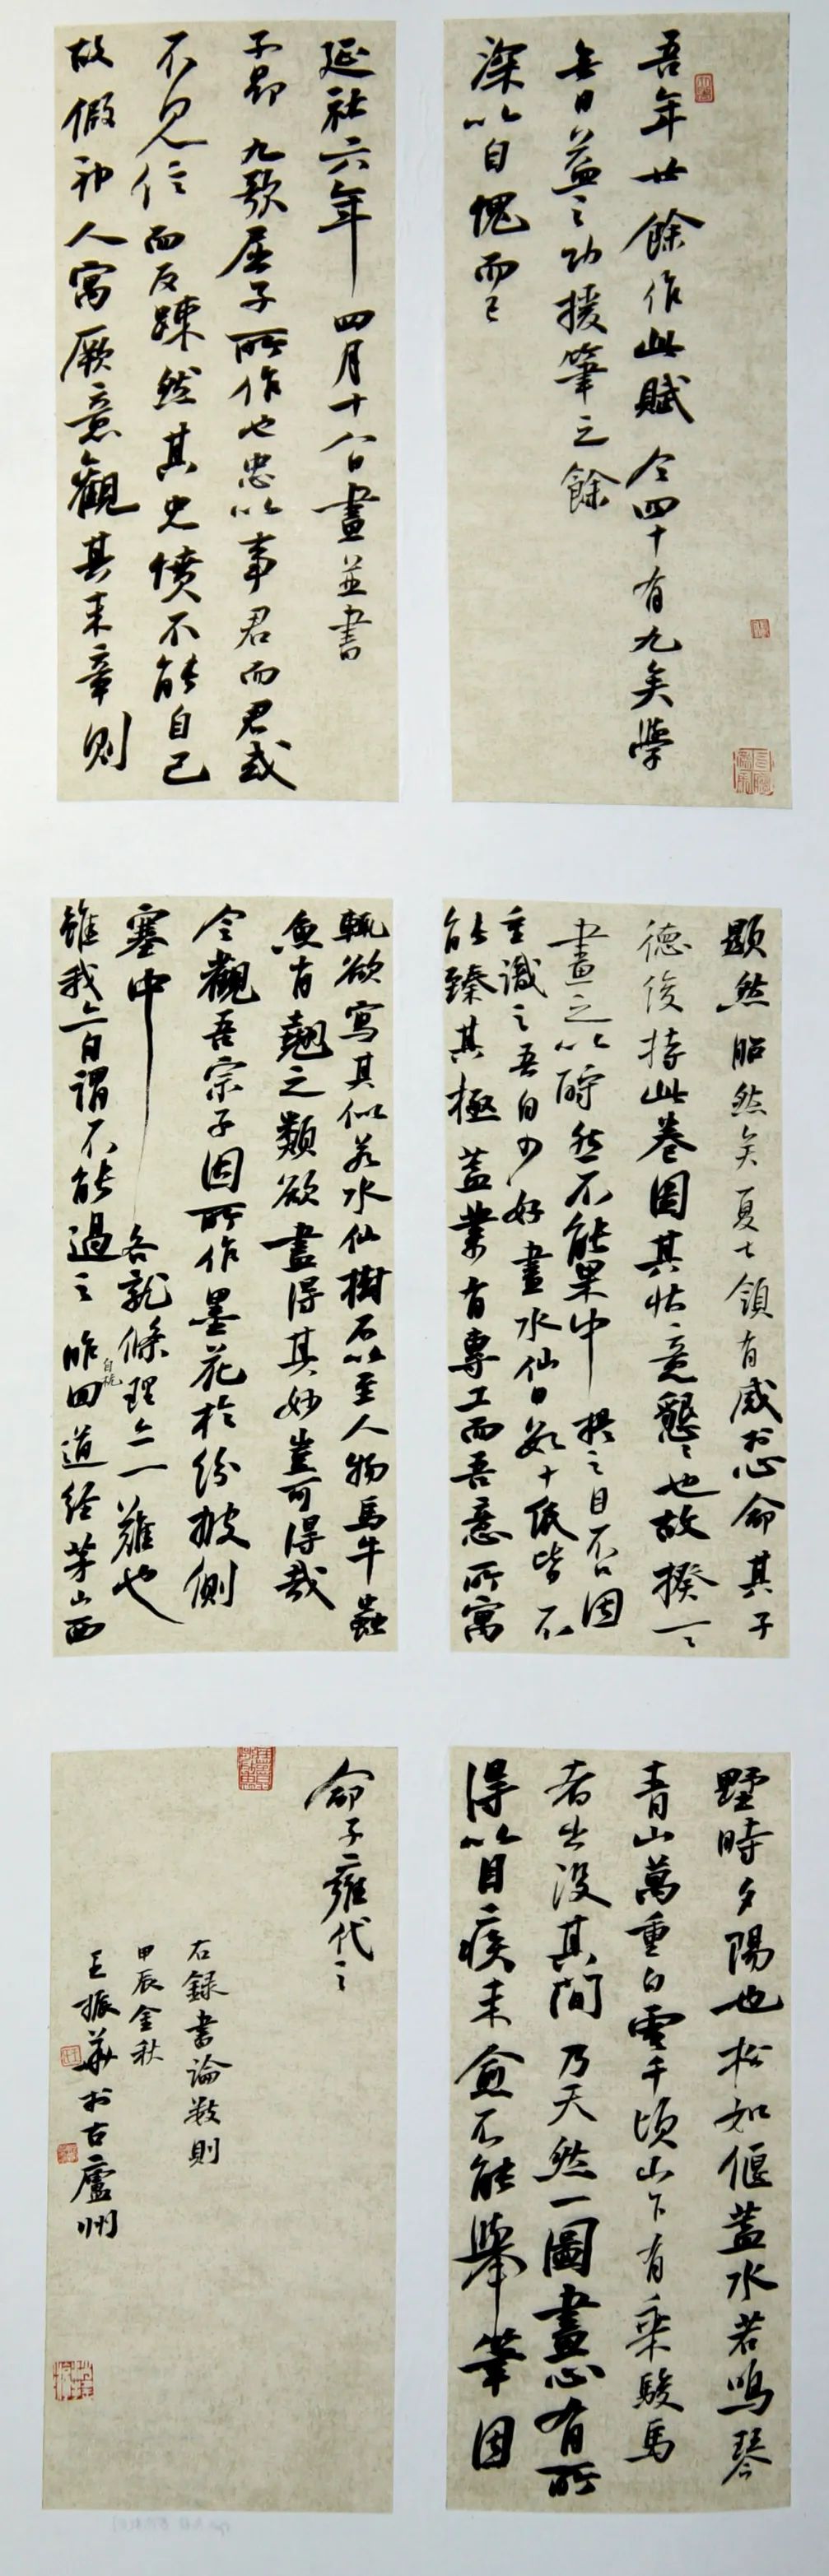 吾年廿餘作此賦今四十有九矣學
無日益之功援筆之餘
深以自愧而已
延祐六年四月十八日畫並書
子昂九歌屈子所作也忠以事君而君或
不見信而反踈然其忠憤不能自己
故假神人寓厥意觀其末章則
顯然昭然矣夏士領有感於心命其子
德俊持此卷圖其狀意懇懇也故揆一一
畫之以酹然不能果中扶之自否因
重識之吾自少好畫水仙日數十紙皆不
能臻其極蓋業有專工而吾意所寓
輒欲寫其似若水仙樹石以至人物馬牛蟲
魚肖翹之類欲盡得其妙豈可得哉
今觀吾宗子固所作墨花於紛披側
塞中各就條理亦一難也
雖我亦自謂不能過之昨回道經茅山西
自杭
墅時夕陽也松如偃蓋水若鳴琴
青山萬重白雲千頃山下有乘駿馬
者出没其間乃天然一圖畫心有所
得以目疾未愈不能舉筆因
命子雍代之
右録書論數則
甲辰金秋
王振華於古廬州